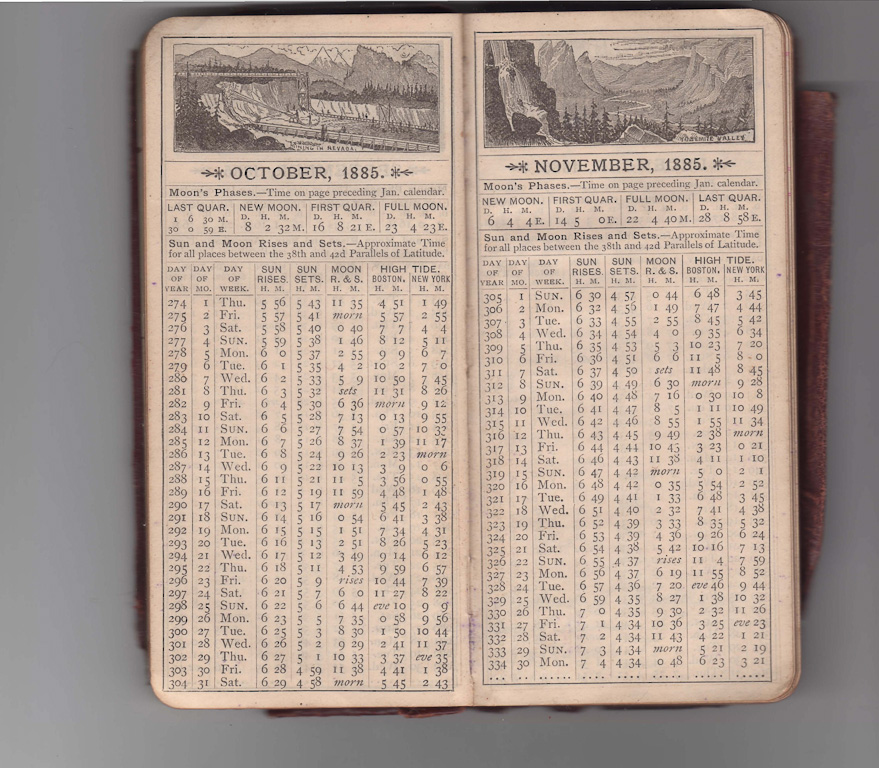 MINING IN NEVADA.
OCTOBER, 1885.
Moon's Phases.—Time on page preceding Jan. calendar.
LAST QUAR. NEW MOON. FIRST QUAR. FULL MOON.
D. H. M. D. H. M. D. H. M.
1 6 30 M. 8 2 32 M. 16 8 21 E. 23 4 23 E.
30 0 59 E.
Sun and Moon Rises and Sets.—Approximate Time
for all places between the 38th and 42d Parallels of Latitude.
DAY OF YEAR DAY OF MO. DAY OF WEEK. SUN RISES. SUN SETS. MOON R. & S. HIGH TIDE. BOSTON. NEW YORK
H. M. H. M. H. M. H. M. H. M.
274 1 Thu. 5 56 5 43 11 35 4 51 1 49
275 2 Fri. 5 57 5 41 morn 5 57 2 55
276 3 Sat. 5 58 5 40 0 40 7 7 4 4
277 4 SUN. 5 59 5 38 1 46 8 12 5 11
278 5 Mon. 6 0 5 37 2 55 9 9 6 7
279 6 Tue. 6 1 5 35 4 2 10 2 7 0
280 7 Wed. 6 2 5 33 5 9 10 50 7 45
281 8 Thu. 6 3 5 32 sets 11 31 8 26
282 9 Fri. 6 4 5 30 6 36 morn 9 12
283 10 Sat. 6 5 5 28 7 13 0 13 9 55
284 11 SUN. 6 6 5 27 7 54 0 57 10 33
285 12 Mon. 6 7 5 26 8 37 1 39 11 17
286 13 Tue. 6 8 5 24 9 26 2 23 morn
287 14 Wed. 6 9 5 22 10 13 3 9 0 6
288 15 Thu. 6 11 5 21 11 5 3 56 0 55
289 16 Fri. 6 12 5 19 11 59 4 48 1 48
290 17 Sat. 6 13 5 17 morn 5 45 2 43
291 18 SUN. 6 14 5 16 0 54 6 41 3 38
292 19 Mon. 6 15 5 15 1 51 7 34 4 31
293 20 Tue. 6 16 5 13 2 51 8 26 5 23
294 21 Wed. 6 17 5 12 3 49 9 14 6 12
295 22 Thu. 6 18 5 11 4 53 9 59 6 57
296 23 Fri. 6 20 5 9 rises 10 44 7 39
297 24 Sat. 6 21 5 7 6 0 11 27 8 22
298 25 SUN. 6 22 5 6 6 44 eve 10 9 9
299 26 Mon. 6 23 5 5 7 35 0 58 9 56
300 27 Tue. 6 25 5 3 8 30 1 50 10 44
301 28 Wed. 6 26 5 2 9 29 2 41 11 37
302 29 Thu. 6 27 5 1 10 33 3 37 eve 35
303 30 Fri. 6 28 4 59 11 38 4 41 1 38
304 31 Sat. 6 29 4 58 morn 5 45 2 43
YOSEMITE VALLEY.
NOVEMBER, 1885.
Moon's Phases.—Time on page preceding Jan. calendar.
NEW MOON. FIRST QUAR. FULL MOON. LAST QUAR.
D. H. M. D. H. M. D. H. M. D. H. M.
6 4 4 E. 14 5 0 E. 22 4 40 M. 28 8 58 E.
Sun and Moon Rises and Sets.—Approximate Time
for all places between the 38th and 42d Parallels of Latitude.
DAY OF YEAR DAY OF MO. DAY OF WEEK. SUN RISES. SUN SETS. MOON R. & S. HIGH TIDE. BOSTON. NEW YORK
H. M. H. M. H. M. H. M. H. M.
305 1 SUN. 6 30 4 57 0 44 6 48 3 45
306 2 Mon. 6 32 4 56 1 49 7 47 4 44
307 3 Tue. 6 33 4 55 2 55 8 45 5 42
308 4 Wed. 6 34 4 54 4 0 9 35 6 34
309 5 Thu. 6 35 4 53 5 3 10 23 7 20
310 6 Fri. 6 36 4 51 6 6 11 5 8 0
311 7 Sat. 6 37 4 50 sets 11 48 8 45
312 8 SUN. 6 39 4 49 6 30 morn 9 28
313 9 Mon. 6 40 4 48 7 16 0 30 10 8
314 10 Tue. 6 41 4 47 8 5 1 11 10 49
315 11 Wed. 6 42 4 46 8 55 1 55 11 34
316 12 Thu. 6 43 4 45 9 49 2 38 morn
317 13 Fri. 6 44 4 44 10 43 3 23 0 21
318 14 Sat. 6 46 4 43 11 38 4 11 1 10
319 15 SUN. 6 47 4 42 morn 5 0 2 1
320 16 Mon. 6 48 4 42 0 35 5 54 2 52
321 17 Tue. 6 49 4 41 1 33 6 48 3 45
322 18 Wed. 6 51 4 40 2 32 7 41 4 38
323 19 Thu. 6 52 4 39 3 33 8 35 5 32
324 20 Fri. 6 53 4 39 4 36 9 26 6 24
325 21 Sat. 6 54 4 38 5 42 10 16 7 13
326 22 SUN. 6 55 4 37 rises 11 4 7 59
327 23 Mon. 6 56 4 37 6 19 11 55 8 52
328 24 Tue. 6 57 4 36 7 20 eve 46 9 44
329 25 Wed. 6 59 4 35 8 27 1 38 10 32
330 26 Thu. 7 0 4 35 9 30 2 32 11 26
331 27 Fri. 7 1 4 34 10 36 3 25 eve 23
332 28 Sat. 7 2 4 34 11 43 4 22 1 21
333 29 SUN. 7 3 4 34 morn 5 21 2 19
334 30 Mon. 7 4 4 34 0 48 6 23 3 21